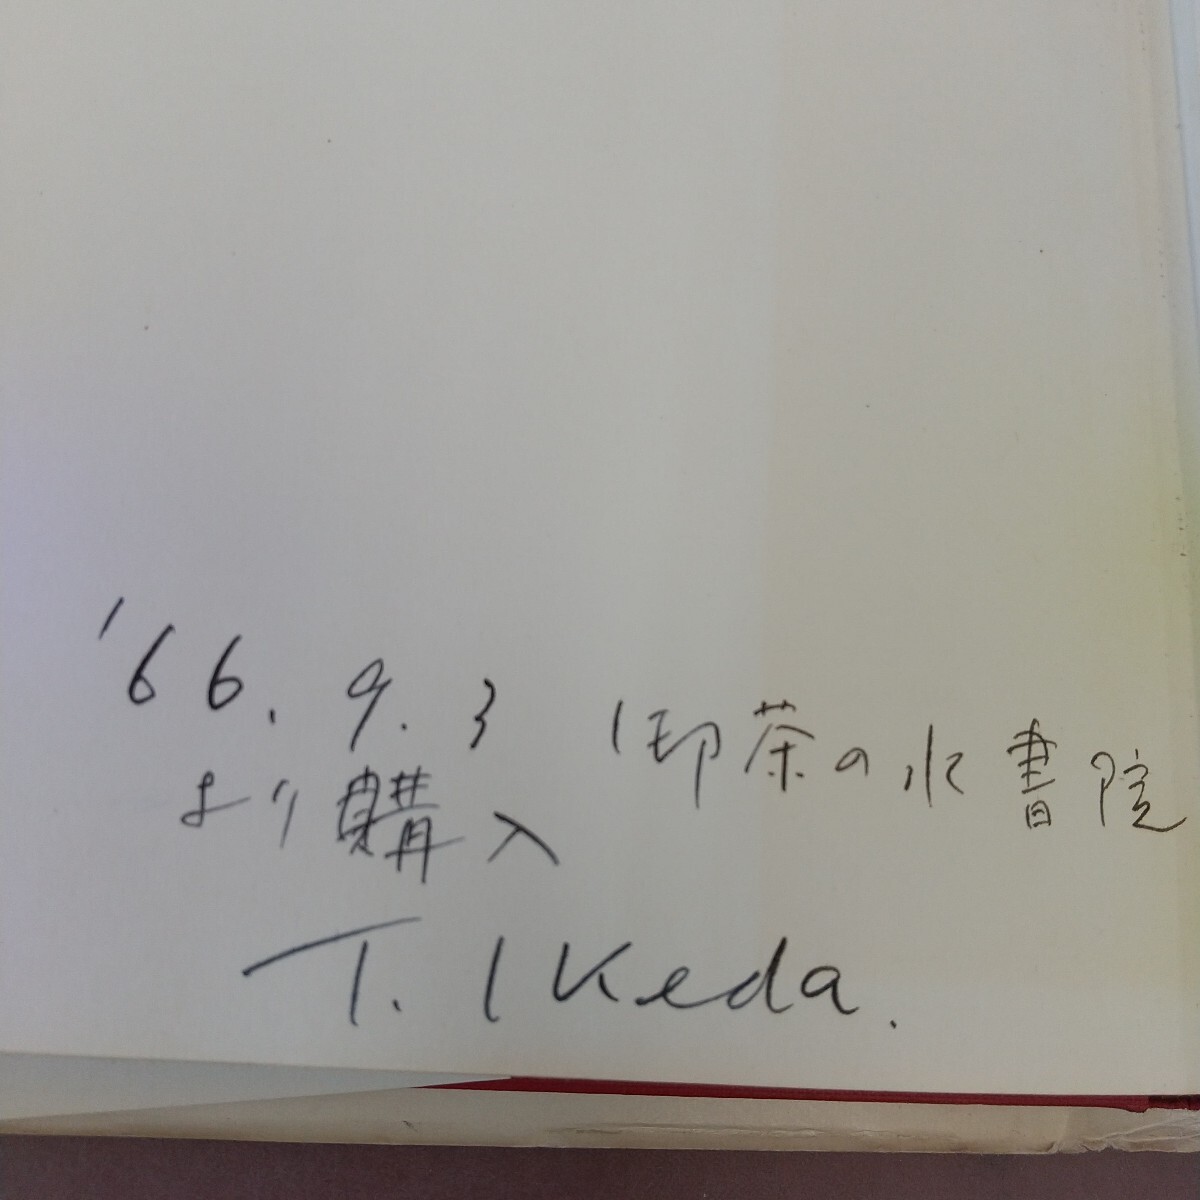 '66. 9. 3 御茶の水書院
より購入
T. Ikeda.